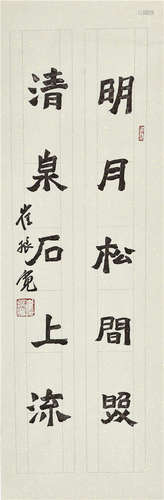 明月松間照
清泉石上流
崔振寬